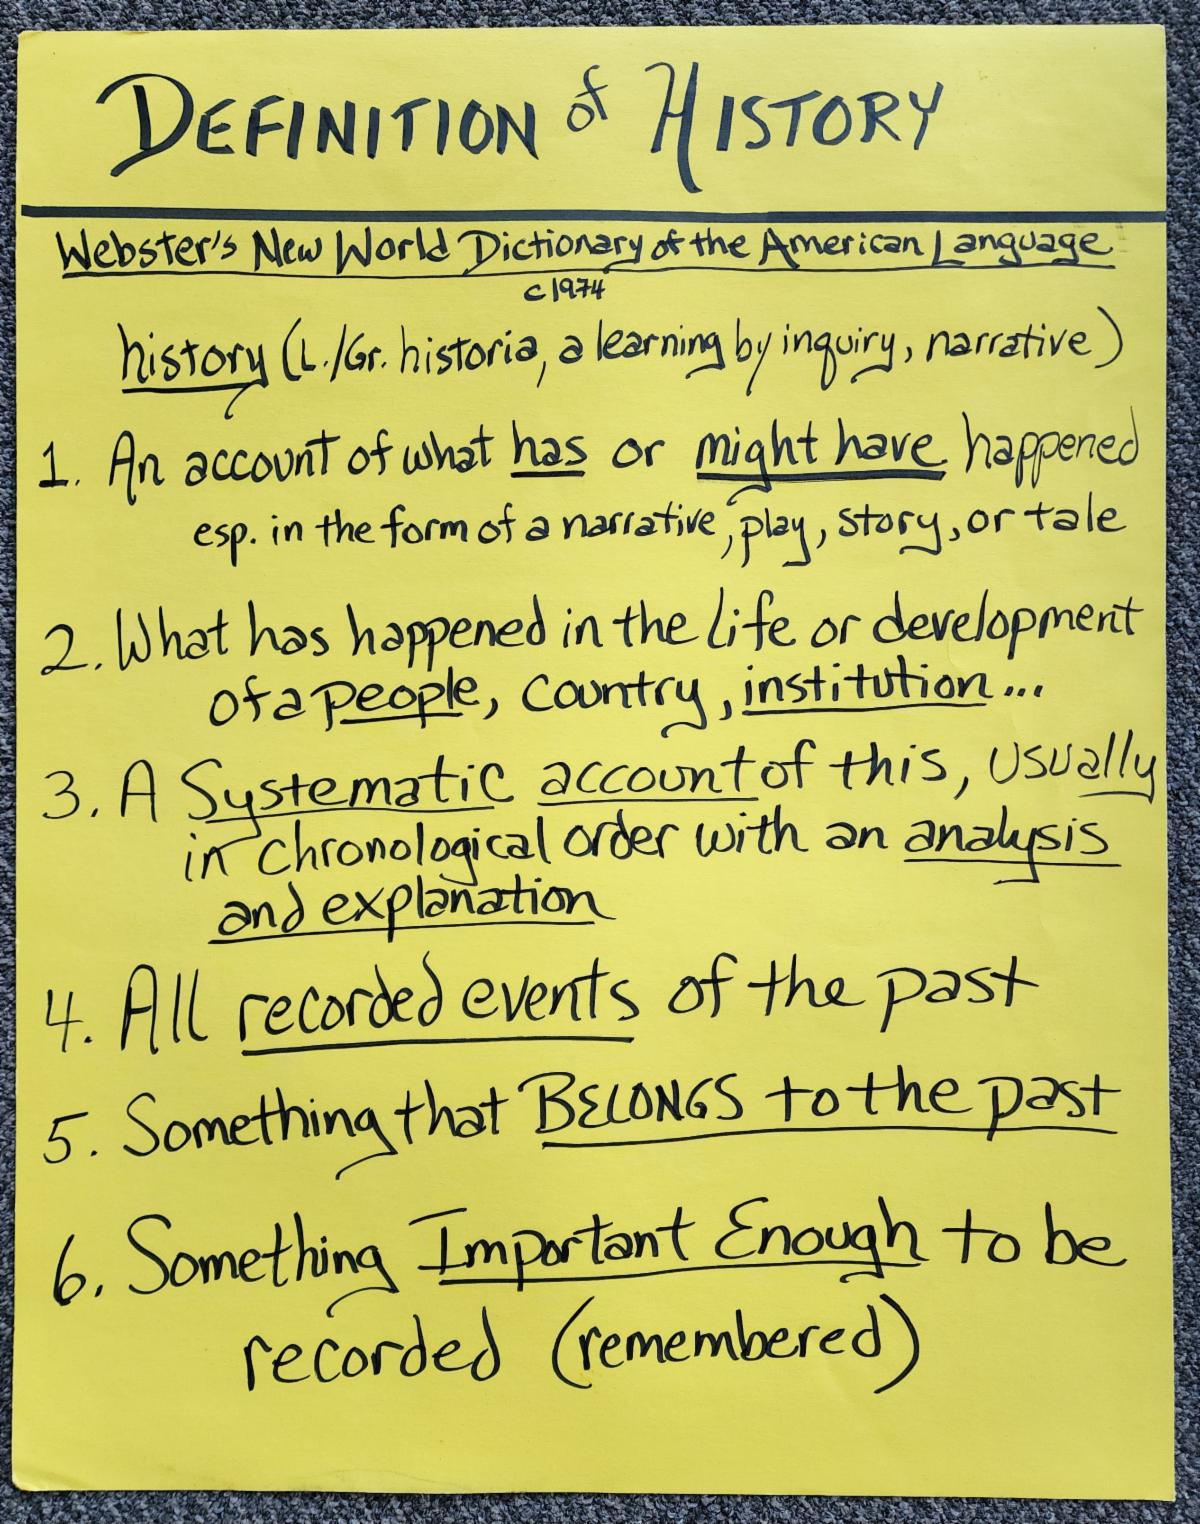 DEFINITION of HISTORY
Webster's New World Dictionary of the American Language
c1974
history (L./Gr. historia, a learning by inquiry, narrative)
1. An account of what has or might have happened
esp. in the form of a narrative, play, story, or tale
2. What has happened in the life or development
of a people, country, institution...
3. A Systematic account of this, usually
in chronological order with an analysis
and explanation
4. All recorded events of the past
5. Something that BELONGS to the past
6. Something Important Enough to be
recorded (remembered)